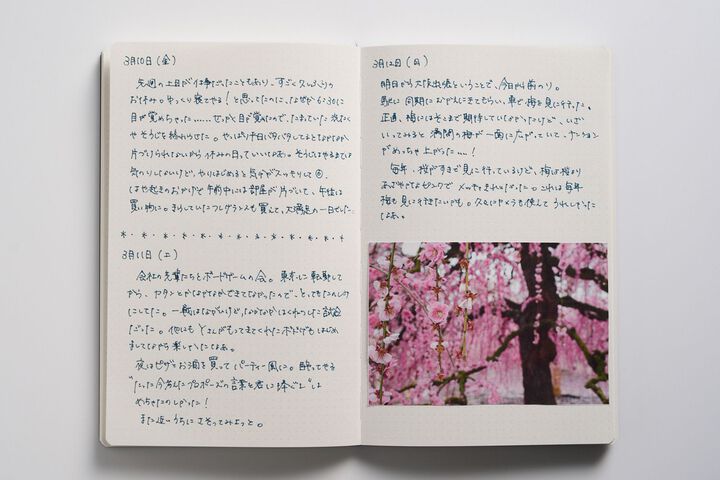 3月10日（金）
先週の土日が仕事だったこともあり、すごく久しぶりの
お休み。ゆっくり寝てやる！と思ってたのに、なぜか6:30に
目が覚めちゃった……せっかく目が覚めたので、たまっていた洗たく
やそうじを終わらせた。やっぱり平日バタバタしてるとなかなか
片づけられないから休みの日っていいなあ。そうじはやるまでは
気のりしないけど、やりはじめると気分がスッキリして
はや起きのおかげで午前中には部屋が片づいて、午後は
買い物に。きらしていたフレグランスも買えて、大満足の一日でした。
3月11日（土）
会社の先輩たちとボードゲームの会。東京に転職して
から、カタンとかなかなかできてなかったので、とってもたのしみ
にしてた。一戦はながいけど、なかなかはくねつした試合
だった。他にもYさんがもってきてくれたボドゲもはじめ
ましてながら楽しかったなあ。
夜はピザとお酒を買ってパーティー風に。酔ってやる
"たった今考えたプロポーズの言葉を君に捧ぐよ"は
めちゃたのしかった！
また近いうちにさそってみよっと。
3月12日（日）
明日から大阪出張ということで、今日から前のり。
気に同期におむかえにきてもらい、車で梅を見に行った。
正直、梅にはそこまで期待していなかったけど、いざ
いってみると満開の梅が一面に広がっていて、テンション
がめっちゃ上がった…！
毎年、桜がすきで見に行っているけど、梅は桜より
あざやかなピンクでメッチャきれいだった。これは毎年
梅も見に行きたいかも。久々にカメラも使えてうれしかった
なあ。